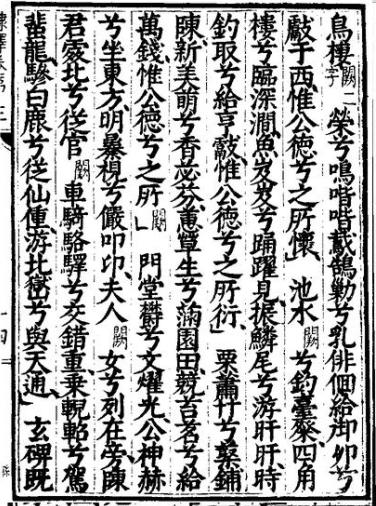 鳥棲闕二字榮兮鳴喈喈載鵠勦兮乳俳佪給御卵兮
獻于西惟公德兮之所懷 池水闕兮釣臺粲四角
樓兮臨深澗魚岌岌兮踊躍見振鱗尾兮游旰旰時
釣取兮給亨獻惟公德兮之所衍 栗蕭竹兮鋪
陳新美萌兮香苾芬蕙生兮滿園田競苔茗兮給
萬錢惟公德兮之所闕 門堂鬱兮文燿光公神赫
兮坐東方明暴視兮儼卬卬夫人闕女兮列在旁陳
君處北兮從官闕車騎駱驛兮交錯重乘輗軺兮駕
蜚龍驂白鹿兮從仙僮游北嶽兮與天通 玄碑既